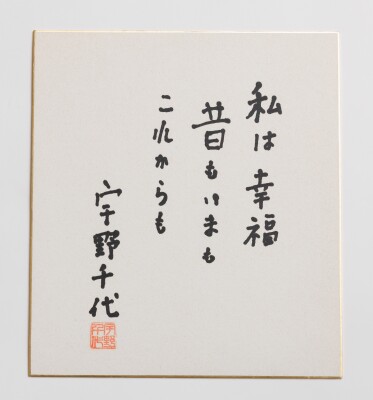 私は幸福
昔もいまも
これからも
宇野千代